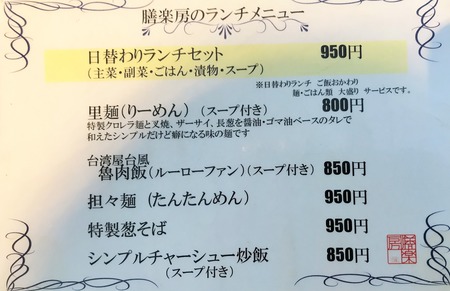 膳楽房のランチメニュー
日替わりランチセット 950円
(主菜・副菜・ごはん・漬物・スープ)
※日替わりランチ ご飯おかわり
麺・ごはん類 大盛り サービスです。
里麺(りーめん)(スープ付き) 800円
特製クロレラ麺と叉焼、ザーサイ、長葱を醤油・ゴマ油ベースのタレで
和えたシンプルだけど癖になる味の麺です
台湾屋台風
魯肉飯(ルーローファン)(スープ付き) 850円
担々麺(たんたんめん) 950円
特製葱そば 950円
シンプルチャーシュー炒飯 850円
(スープ付き)
膳楽房